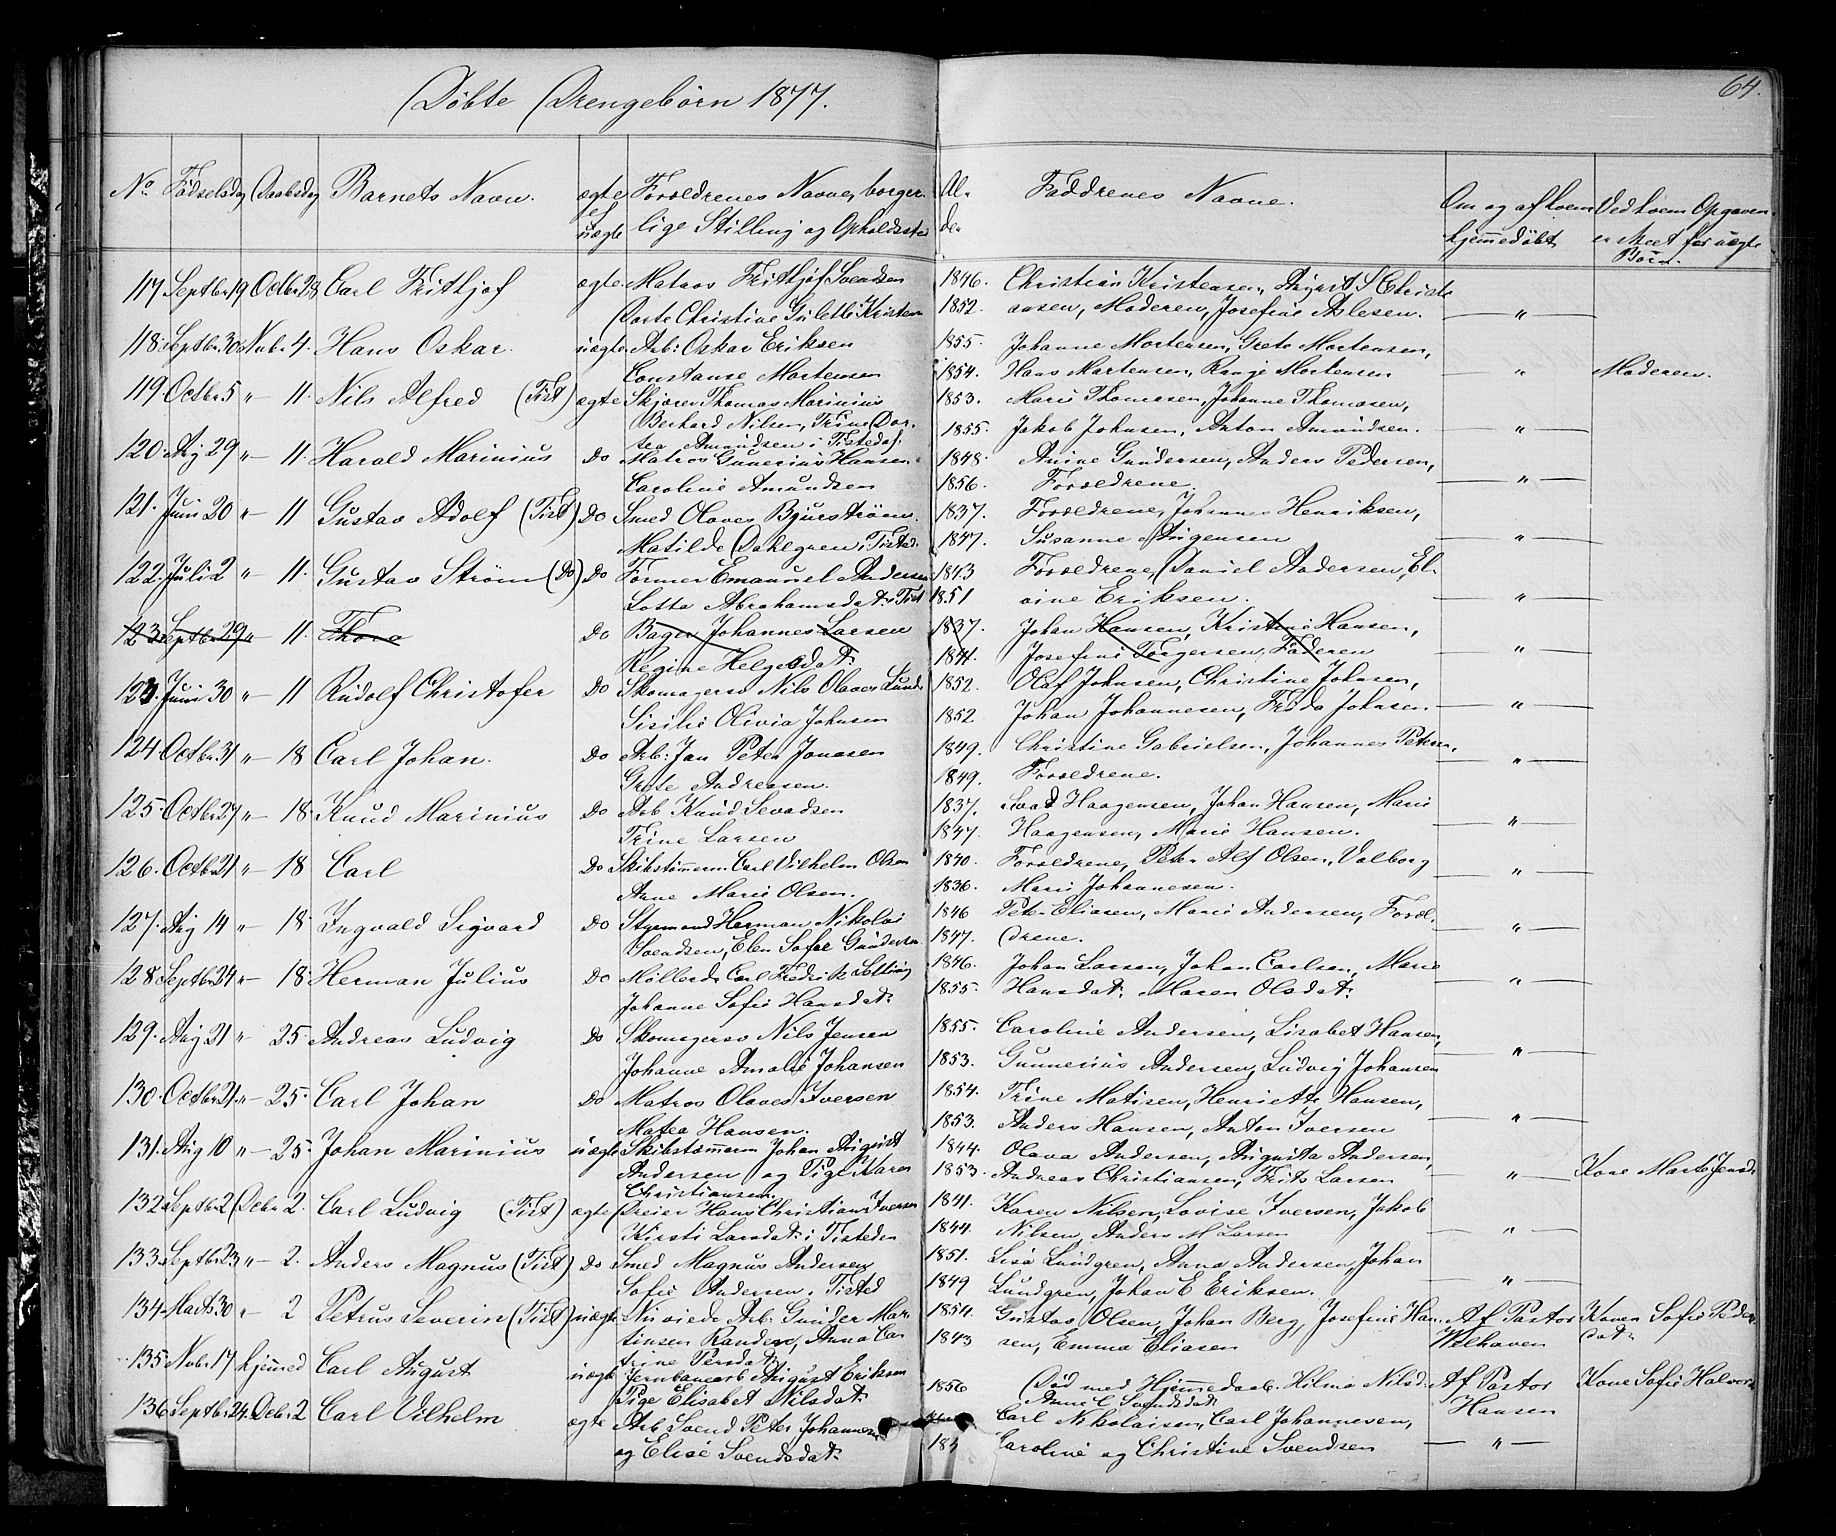 Døbte Drengebørn 1877.
64.
No Fødselsdag Daabsdag Barnets Navn. ægte Forældrenes Navne, borger Al- Faddrenes Navne. Om og af hvem Ved hvem Opgaven
el uægte lige Stilling og Opholdssted der hjemmedøbt er skeet for uægte
Børn.
117 Septbr 19 Octbr 28 Carl Frithjof ægte Matros Frithjof Svendsen 1846. Christian Kristensen, S Christi
Dorte Christine Kristen 1852. ansen, Moderen, Josefine Aslesen. — " —
118. Septbr 30 Nvbr 4. Hans Oskar. uægte Arb: Oskar Eriksen 1855. Johanne Mortensen, Grete Mortensen,
Constanse Mortensen 1854. Hans Martensen, Mortensen — " — Moderen.
119 Octbr 5 " — 11. Nils Alfred (Tist) ægte Skjærer Thomas Marinius 1853. Marie Thomasen, Johanne Thomasen,
Berhard Nilsen, Trine Dor- 1855. Jakob Johnsen, Anton Amundsen. — " —
tea Amundsen i Tistedal.
120. Aug 29 " — 11. Harald Marinius Do Matros Gunerius Hansen. 1848. Anine Gundersen, Anders Pedersen,
Caroline Amundsen 1856. Forældrene. — " —
121. Juni 20 " — 11 Gustav Adolf (Tist) Do Smed Olaves Bjurstrøm. 1837. Forældrene, Johannes Henriksen,
Matilde Dahlgren i Tisted. 1847. Susanne Jørgensen — " —
122. Juli 2 " — 11. Gustav Strøm (Do) Do Former Emanuel Andersen 1843 Forældrene, Daniel Andersen, El-
Lotta Abrahamsdat. i Tist 1851 vine Eriksen. — " —
123 Septbr 29 " — 11. Thore Do Bager Johannes Larsen 1837. Johan Hansen, Kristine Hansen,
Regine Helgesdat: 1841. Josefine Torgersen, Faderen — " —
123. Juni 30 " — 11 Rudolf Christofer Do Skomagersv Nils Olaves Lund 1852. Olaf Johnsen, Christine Johnsen,
Sisilie Olivia Johnsen 1852. Johan Johannesen, Frida Johnsen — " —
124 Octbr. 31 " — 18 Carl Johan. Do Arb: Jan Peter Jonasen 1849. Christine Gabrielsen, Johannes Peters.
Grete Andreasen. 1849. Forældrene. — " —
125. Octbr. 27 " — 18. Knud Marinius Do Arb Knud Sevadsen 1837. Haagensen, Johan Hansen, Marie
Trine Larsen 1847. Haagensen, Marie Hansen. — " —
126. Octbr. 21 " — 18 Carl Do Skibstømmerm. Carl Vilhelm Olsen 1840. Forældrene, Peter Alf Olsen, Valborg
Anne Marie Olsen. 1836. Marie Johannesen. — " —
127. Aug 14 " — 18 Ingvald Sigvard Do Styrmand Herman Nikolai 1846 Peter Eliasen, Marie Andersen, Foræl-
Svendsen, Elen Sofie Gundersen 1847. drene. — " —
128 Septbr 24 " — 18. Herman Julius Do Møllerd. Carl Fredrik 1846. Johan Larsen, Johan Carlsen, Marie
Johanne Sofie Hansdat: 1855. Hansdat: Maren Olsdat: — " —
129. Aug 21 " — 25. Andreas Ludvig Do Skomagersv Nils Jensen 1855. Caroline Andersen, Lisabet Hansen,
Johanne Amalie Johansen 1853. Gunnerius Andersen, Ludvig Johansen — " —
130. Octbr. 21. " — 25. Carl Johan Do Matros Olaves Iversen 1854. Trine Matisen, Henriette Hansen,
Matea Hansen. 1853. Anders Hansen, Anton Iversen — " —
131. Aug 10 " — 25. Johan Marinius uægte Skibstømmerm Johan August 1844. Olava Andersen, Augusta Andersen,
Andersen og Pige Karen 1853. Andreas Christiansen, Frits Larsen — " — Kone Marte Jensd.
Christiansen.
132 Septbr 2 Decbr 2. Carl Ludvig (Tist) ægte Dreier Hans Christian Iversen 1841. Karen Nilsen, Lovise Iversen, Jakob
Kirsti Larsdat. i Tistedn 1844. Nilsen, Anders M Larsen — " —
133. Septbr. 23 " — 2. Anders Magnus (Tist) Do Smed Magnus Andersen 1851. Lisa Lundgren, Anna Andersen, Johan
Sofie Andersen i Tisted 1849 Lundgren, Johan E Eriksen. — " —
134. Marts 30 " — 2 Petrus Severin (Tist) uægte Nuviede Arb. Gunder Mar- 1854. Gustav Olsen, Johan Berg, Josefine Han Af Pastor Konen Sofie Peder
tinsen Randem, Anna Ca- 1843 sen, Emma Eliasen Welhaven dat:
trine Persdat:
135. Nvbr. 17 hjemmed Carl August uægte Jernbanearb August Eriksen Død med Hjemmedaab. Hilma Nilsd. Af Pastor Kone Sofie Halvors
Pige Elisabet Nilsdat: 1856 Anne C Svendsdat: Hansen
136 Septbr. 24. Decbr 2 Carl Vilhelm ægte Arb Svend Peter Johannesen Carl Nikolaisen, Carl Johannesen,
og Elise Svendsdat: 184 Caroline og Christine Svendsen — " —